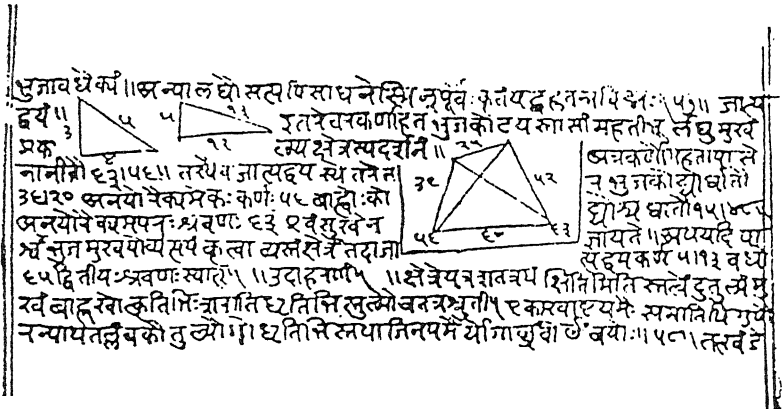 भुजावधैक्यं॥ अन्यालघौ सत्यपिसाधनेस्मिन्पूर्वैः कृतंयद्गुरुतन्नविद्मः॥५७॥ जात्य
द्वयं॥ ३ ५ १३ १२ इतरेतरकर्णाहतभुजकोटय महतीभू र्लघुमुख
प्रक क्षेत्रस्यदर्शनं॥ २५ ३९ ५२ ५६ ६० ६३
नानीतौ ६३।५६॥ तस्यैव जात्यद्वयस्य तत्रेत र भुजकोट्योर्घातौ
३६।२० अनयोरैक्यमेकः कर्णः ५६ बाह्वोः को ट्योश्च घातौ १५।४८
अनयोरैक्यमपरः श्रवणः ६३ एवं सुखेन जायते॥ अथयदि पा
र्श्वभुजमुखयोर्व्यत्ययं कृत्वा न्यस्तं क्षेत्रं तदाजा त्यद्वयकर्ण ५।१३ वधो
६५ द्वितीयः श्रवणः स्यात्॥ ॥उदाहरणं॥ ॥क्षेत्रेयत्रशतत्रयं क्षितिमितिस्तत्त्वेंदुतुल्यं मु
खं बाहू खोत्कृतिभिः शरातिधृतिभिस्तुल्यौ चतत्रश्रुती॥ एकाखाष्टयमैः समातिथिगुणै
रन्याथतल्लंबकौ तुल्यौ गोधृतिभिस्तथाजिनयमैर्योगाच्छ्रवोलंबयोः॥५८॥ तत्खंडे